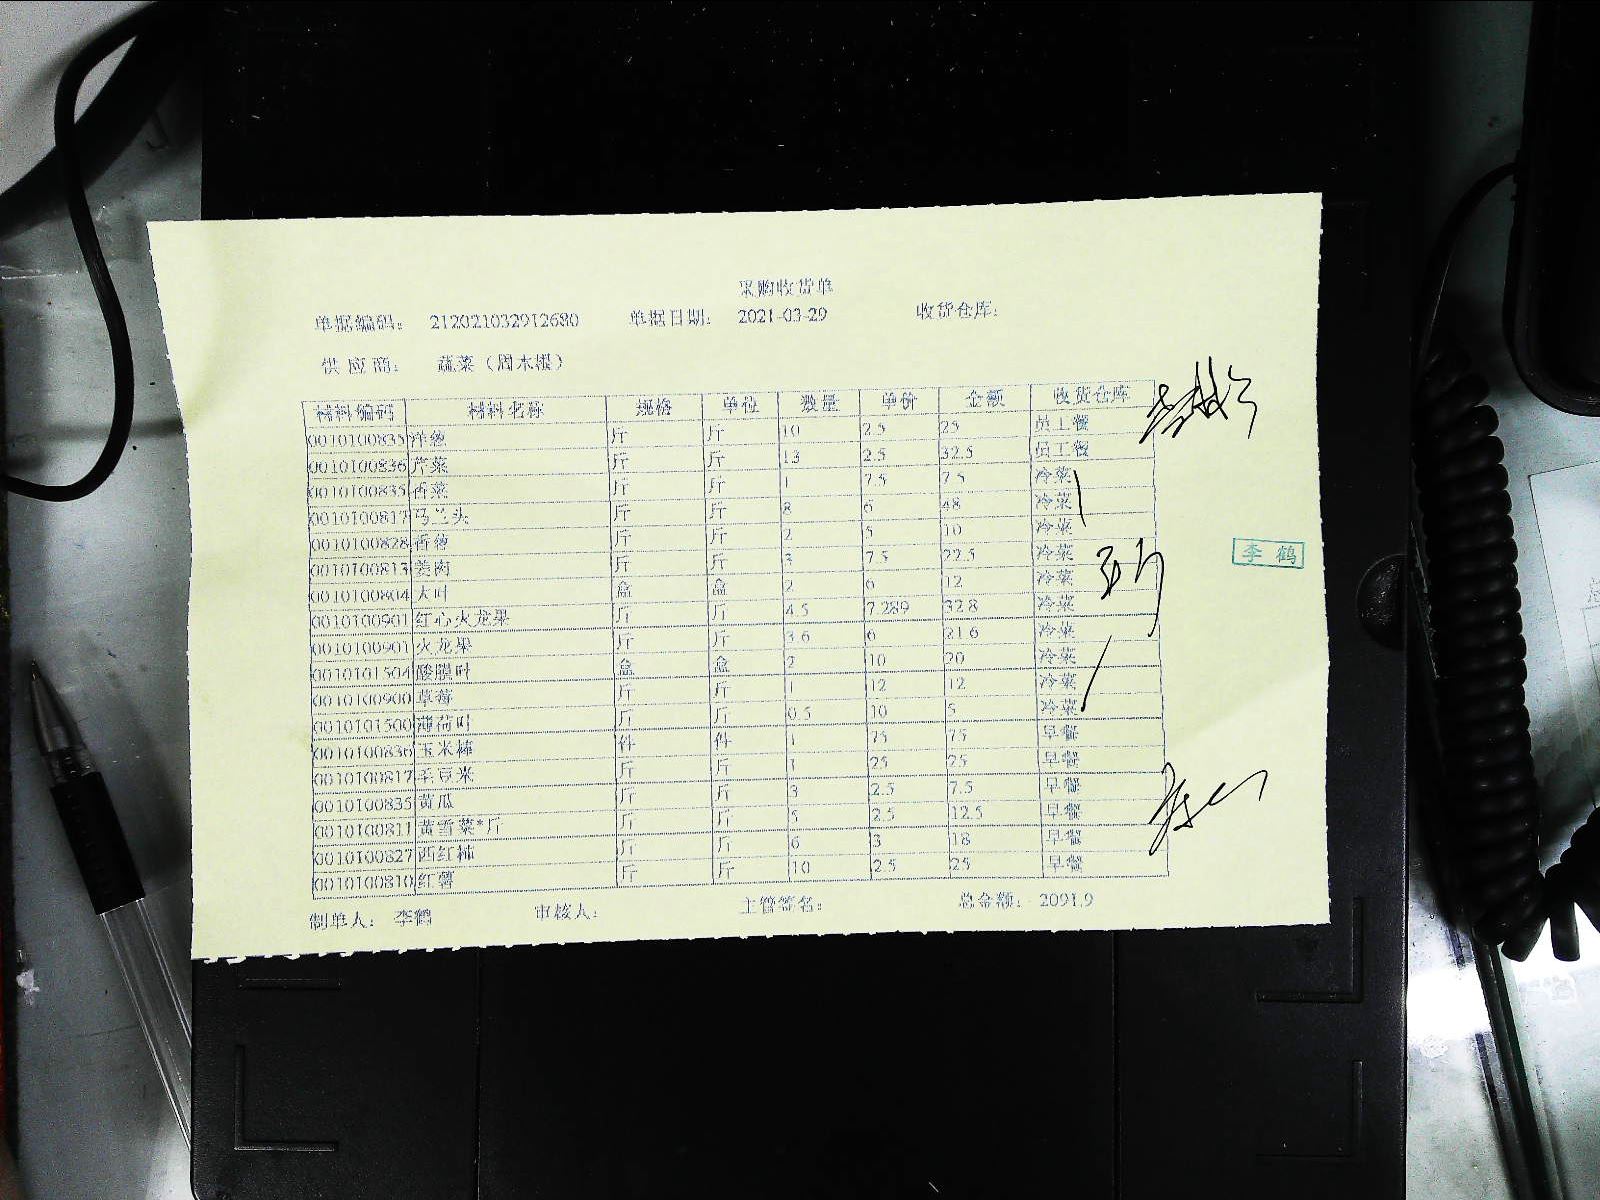 采购收货单
单据编码： 212021032912680 单据日期： 2021-03-29 收货仓库：
供应商： 蔬菜（周木根）
材料编码 材料名称 规格 单位 数量 单价 金额 收货仓库
0010100835 洋葱 斤 斤 10 2.5 25 员工餐
0010100836 芹菜 斤 斤 13 2.5 32.5 员工餐
0010100835 香菜 斤 斤 1 7.5 7.5 冷菜
0010100817 马兰头 斤 斤 8 6 48 冷菜
0010100828 香葱 斤 斤 2 5 10 冷菜
0010100813 姜肉 斤 斤 3 7.5 22.5 冷菜
0010100804 大叶 盒 盒 2 6 12 冷菜
0010100901 红心火龙果 斤 斤 4.5 7.289 32.8 冷菜
0010100901 火龙果 斤 斤 3.6 6 21.6 冷菜
0010101504 酸膜叶 盒 盒 2 10 20 冷菜
0010100900 草莓 斤 斤 1 12 12 冷菜
0010101500 薄荷叶 斤 斤 0.5 10 5 冷菜
0010100836 玉米棒 件 件 1 75 75 早餐
0010100817 毛豆米 斤 斤 1 25 25 早餐
0010100835 黄瓜 斤 斤 3 2.5 7.5 早餐
0010100811 黄雪菜*斤 斤 斤 5 2.5 12.5 早餐
0010100827 西红柿 斤 斤 6 3 18 早餐
0010100810 红薯 斤 斤 10 2.5 25 早餐
制单人： 李鹤 审核人： 主管签名： 总金额： 2091.9
李鹤